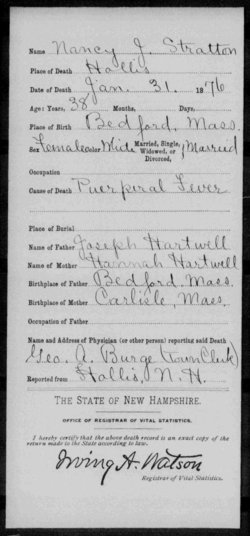 Name Nancy J. Stratton
Place of Death Hollis
Date of Death Jan. 31. 1876
Age: Years, 38 Months, Days,
Place of Birth Bedford, Mass
Sex Female Color White Married, Single, Widowed, or Divorced, Married
Occupation
Cause of Death Puerperal Fever
Place of Burial
Name of Father Joseph Hartwell
Name of Mother Hannah Hartwell
Birthplace of Father Bedford. Mass.
Birthplace of Mother Carlisle, Mass.
Occupation of Father
Name and Address of Physician (or other person) reporting said Death
Geo. A. Burge (Town Clerk)
Reported from Hollis, N. H.
THE STATE OF NEW HAMPSHIRE.
OFFICE OF REGISTRAR OF VITAL STATISTICS.
I hereby certify that the above death record is an exact copy of the
return made to the State according to law.
Irving A. Watson
Registrar of Vital Statistics.